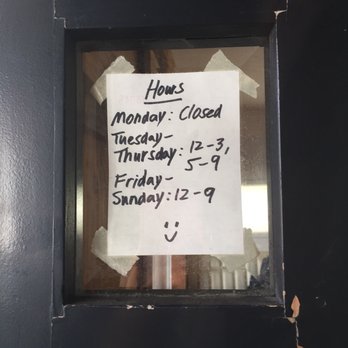 Hours
Monday: Closed
Tuesday-
Thursday: 12-3,
5-9
Friday-
Sunday: 12-9